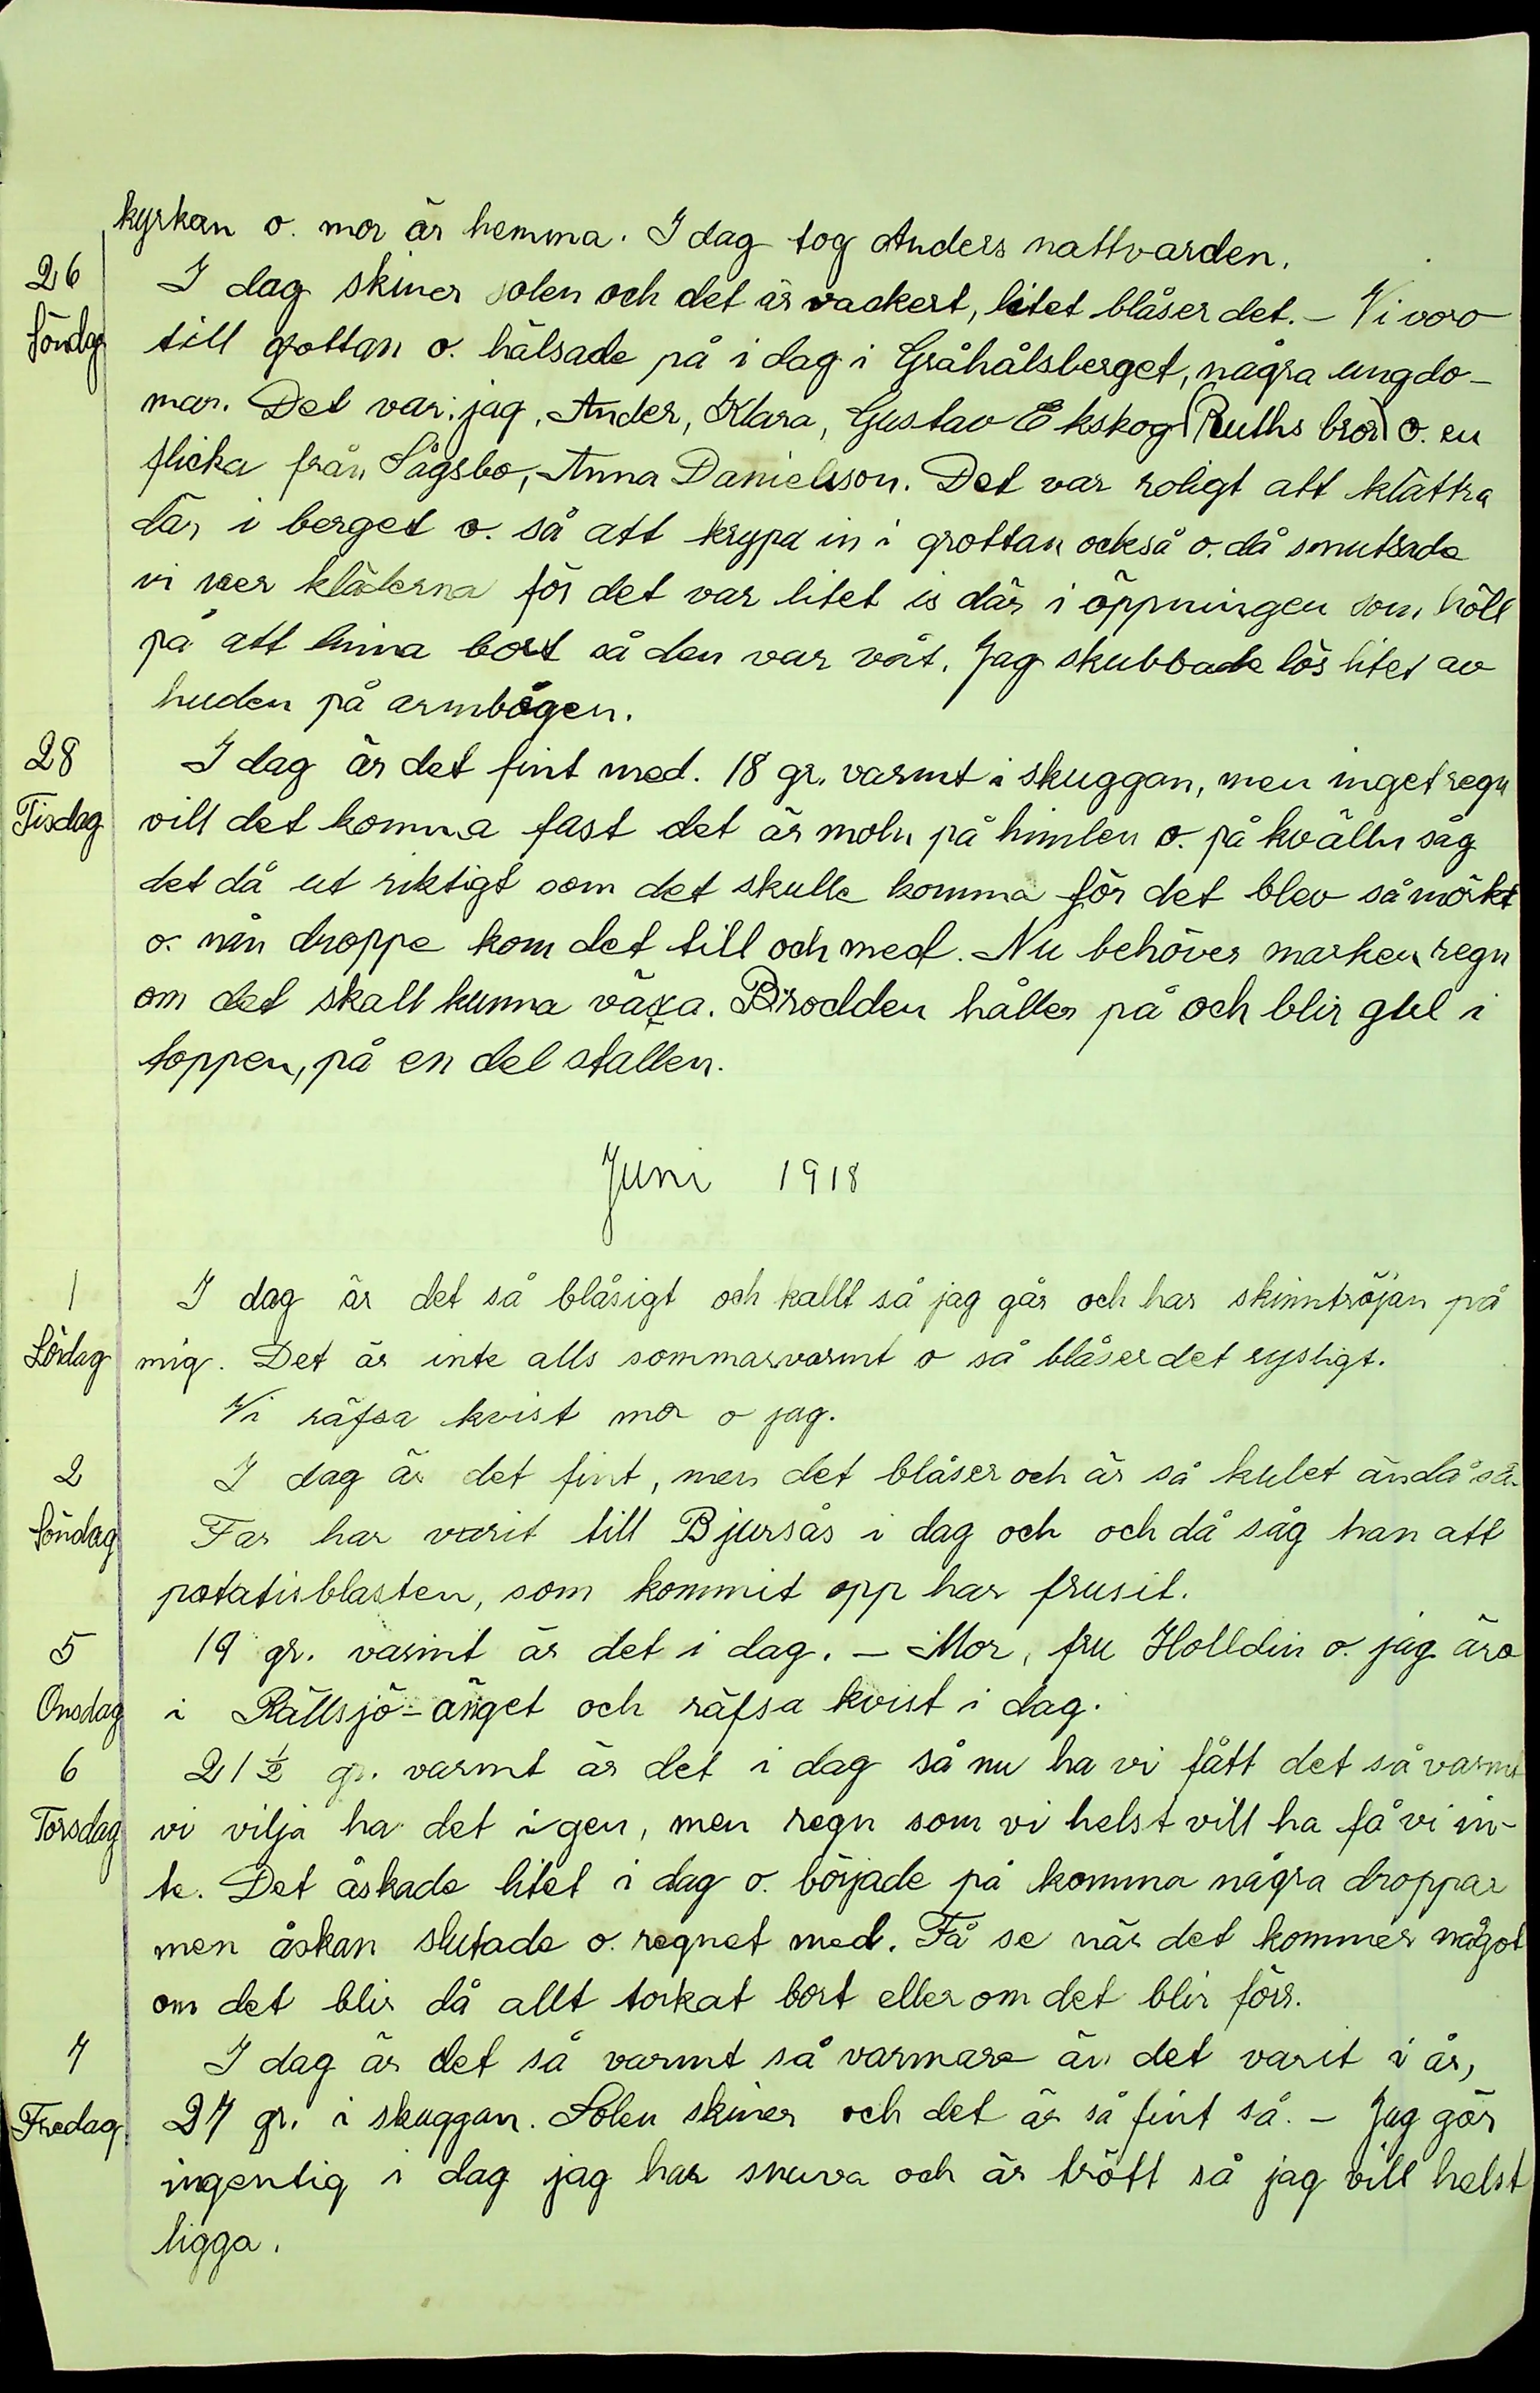 kyrkan o. mor är hemma. I dag tog Anders nattvarden.
26 I dag skiner solen och det är vackert, litet blåser det. – Vi voro
Söndag till grottan o. hälsade på i dag i Gråhålsberget, några ungdo-
mar. Det var: jag, Ander, Klara, Gustav Ekskog (Ruths bror) o. en
flicka från Sågsbo, Anna Danielsson. Det var roligt att klättra
där i berget o. så att krypa in i grottan också o. då smutsade
vi ner kläderna för det var litet is där i öppningen som höll
på att tina bort så den var våt. Jag skubbade lös litet av
huden på armbågen.
28 I dag är det fint med. 18 gr. varmt i skuggan, men inget regn
Tisdag vill det komma fast det är moln på himlen o. på kvälln såg
det då ut riktigt som det skulle komma för det blev så mörkt
o. nån droppe kom det till och med. Nu behöver marken regn
om det skall kunna växa. Brodden håller på och blir gul i
toppen, på en del ställen.
Juni 1918
1 I dag är det så blåsigt och kallt så jag går och har skinntröjan på
Lördag mig. Det är inte alls sommarvarmt o så blåser det rysligt.
Vi räfsa kvist mor o jag.
2 I dag är det fint, men det blåser och är så kulet ändå så.
Söndag Far har varit till Bjursås i dag och och då såg han att
potatisblasten, som kommit opp har frusit.
5 19 gr. varmt är det i dag. – Mor, fru Holldin o. jag äro
Onsdag i Rällsjö-änget och räfsa kvist i dag.
6 21 ½ gr. varmt är det i dag så nu ha vi fått det så varmt
Torsdag vi vilja ha det igen, men regn som vi helst vill ha få vi in-
te. Det åskade litet i dag o. började på komma några droppar
men åskan slutade o. regnet med. Få se när det kommer något
om det blir då allt torkat bort eller om det blir förr.
7 I dag är det så varmt så varmare än det varit i år,
Fredag 27 gr. i skuggan. Solen skiner och det är så fint så. – Jag gör
ingentig i dag jag har snuva och är trött så jag vill helst
ligga.